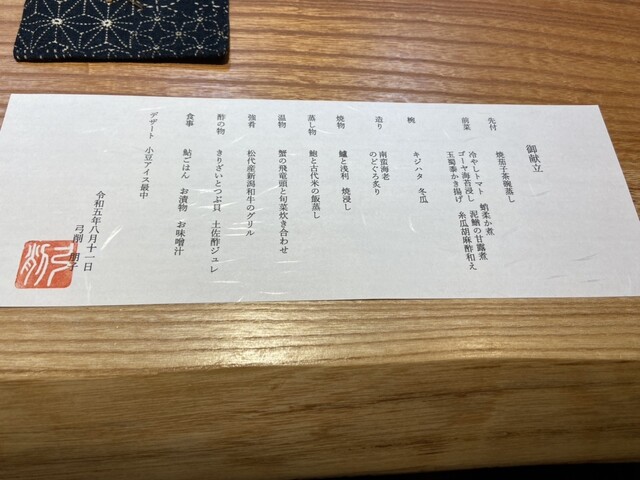 御献立
先付 焼茄子茶碗蒸し
前菜 冷やしトマト 蛸柔か煮
ゴーヤ海苔浸し 泥鰌の甘露煮
玉蜀黍かき揚げ 糸瓜胡麻酢和え
椀 キジハタ 冬瓜
造り 南蛮海老
のどぐろ炙り
焼物 鱸と浅利 焼浸し
蒸し物 鮑と古代米の飯蒸し
温物 蟹の飛竜頭と旬菜炊き合わせ
強肴 松代産新潟和牛のグリル
酢の物 きりざいとつぶ貝 土佐酢ジュレ
食事 鮎ごはん お漬物 お味噌汁
デザート 小豆アイス最中
令和五年八月十一日
弓削 朋子